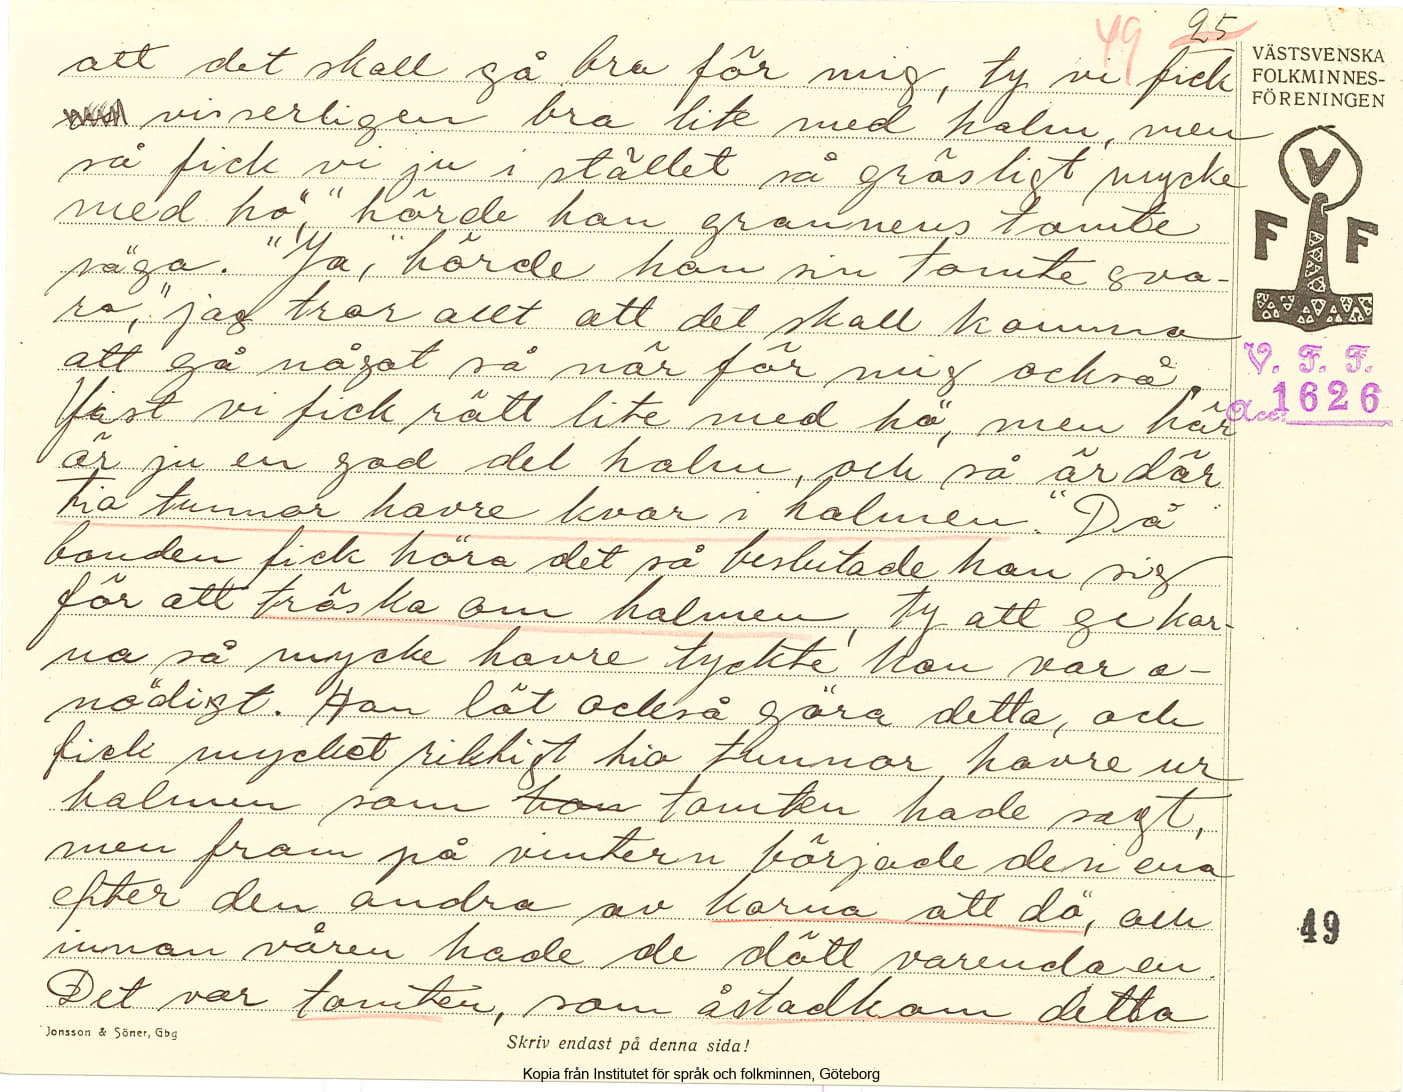 49 25
att det skall gå bra för mig, ty vi fick
visserligen bra lite med halm, men
så fick vi ju i stället så gräsligt mycke
med hö", "hörde han grannens tomte
säga. "Ja," hörde han sin tomte sva-
ra, "jag tror allt att det skall komma
att gå något så när för mig också.
Visst vi fick rätt lite med hö, men här
är ju en god del halm, och så är där
tio tunnor havre kvar i halmen." Då
bonden fick höra det så beslutade han sig
för att tröska om halmen, ty att ge kor-
na så mycke havre tyckte han var o-
nödigt. Han lät också göra detta, och
fick mycket riktigt tio tunnor havre ur
halmen som han tomten hade sagt,
men fram på vintern började den ena
efter den andra av korna att dö, och
innan våren hade de dött varenda en.
Det var tomten, som åstadkom detta
VÄSTSVENSKA
FOLKMINNES-
FÖRENINGEN
V
F F
V. F. F.
Acc. 1626
49
Jonsson & Söner, Gbg
Skriv endast på denna sida!
Kopia från Institutet för språk och folkminnen, Göteborg